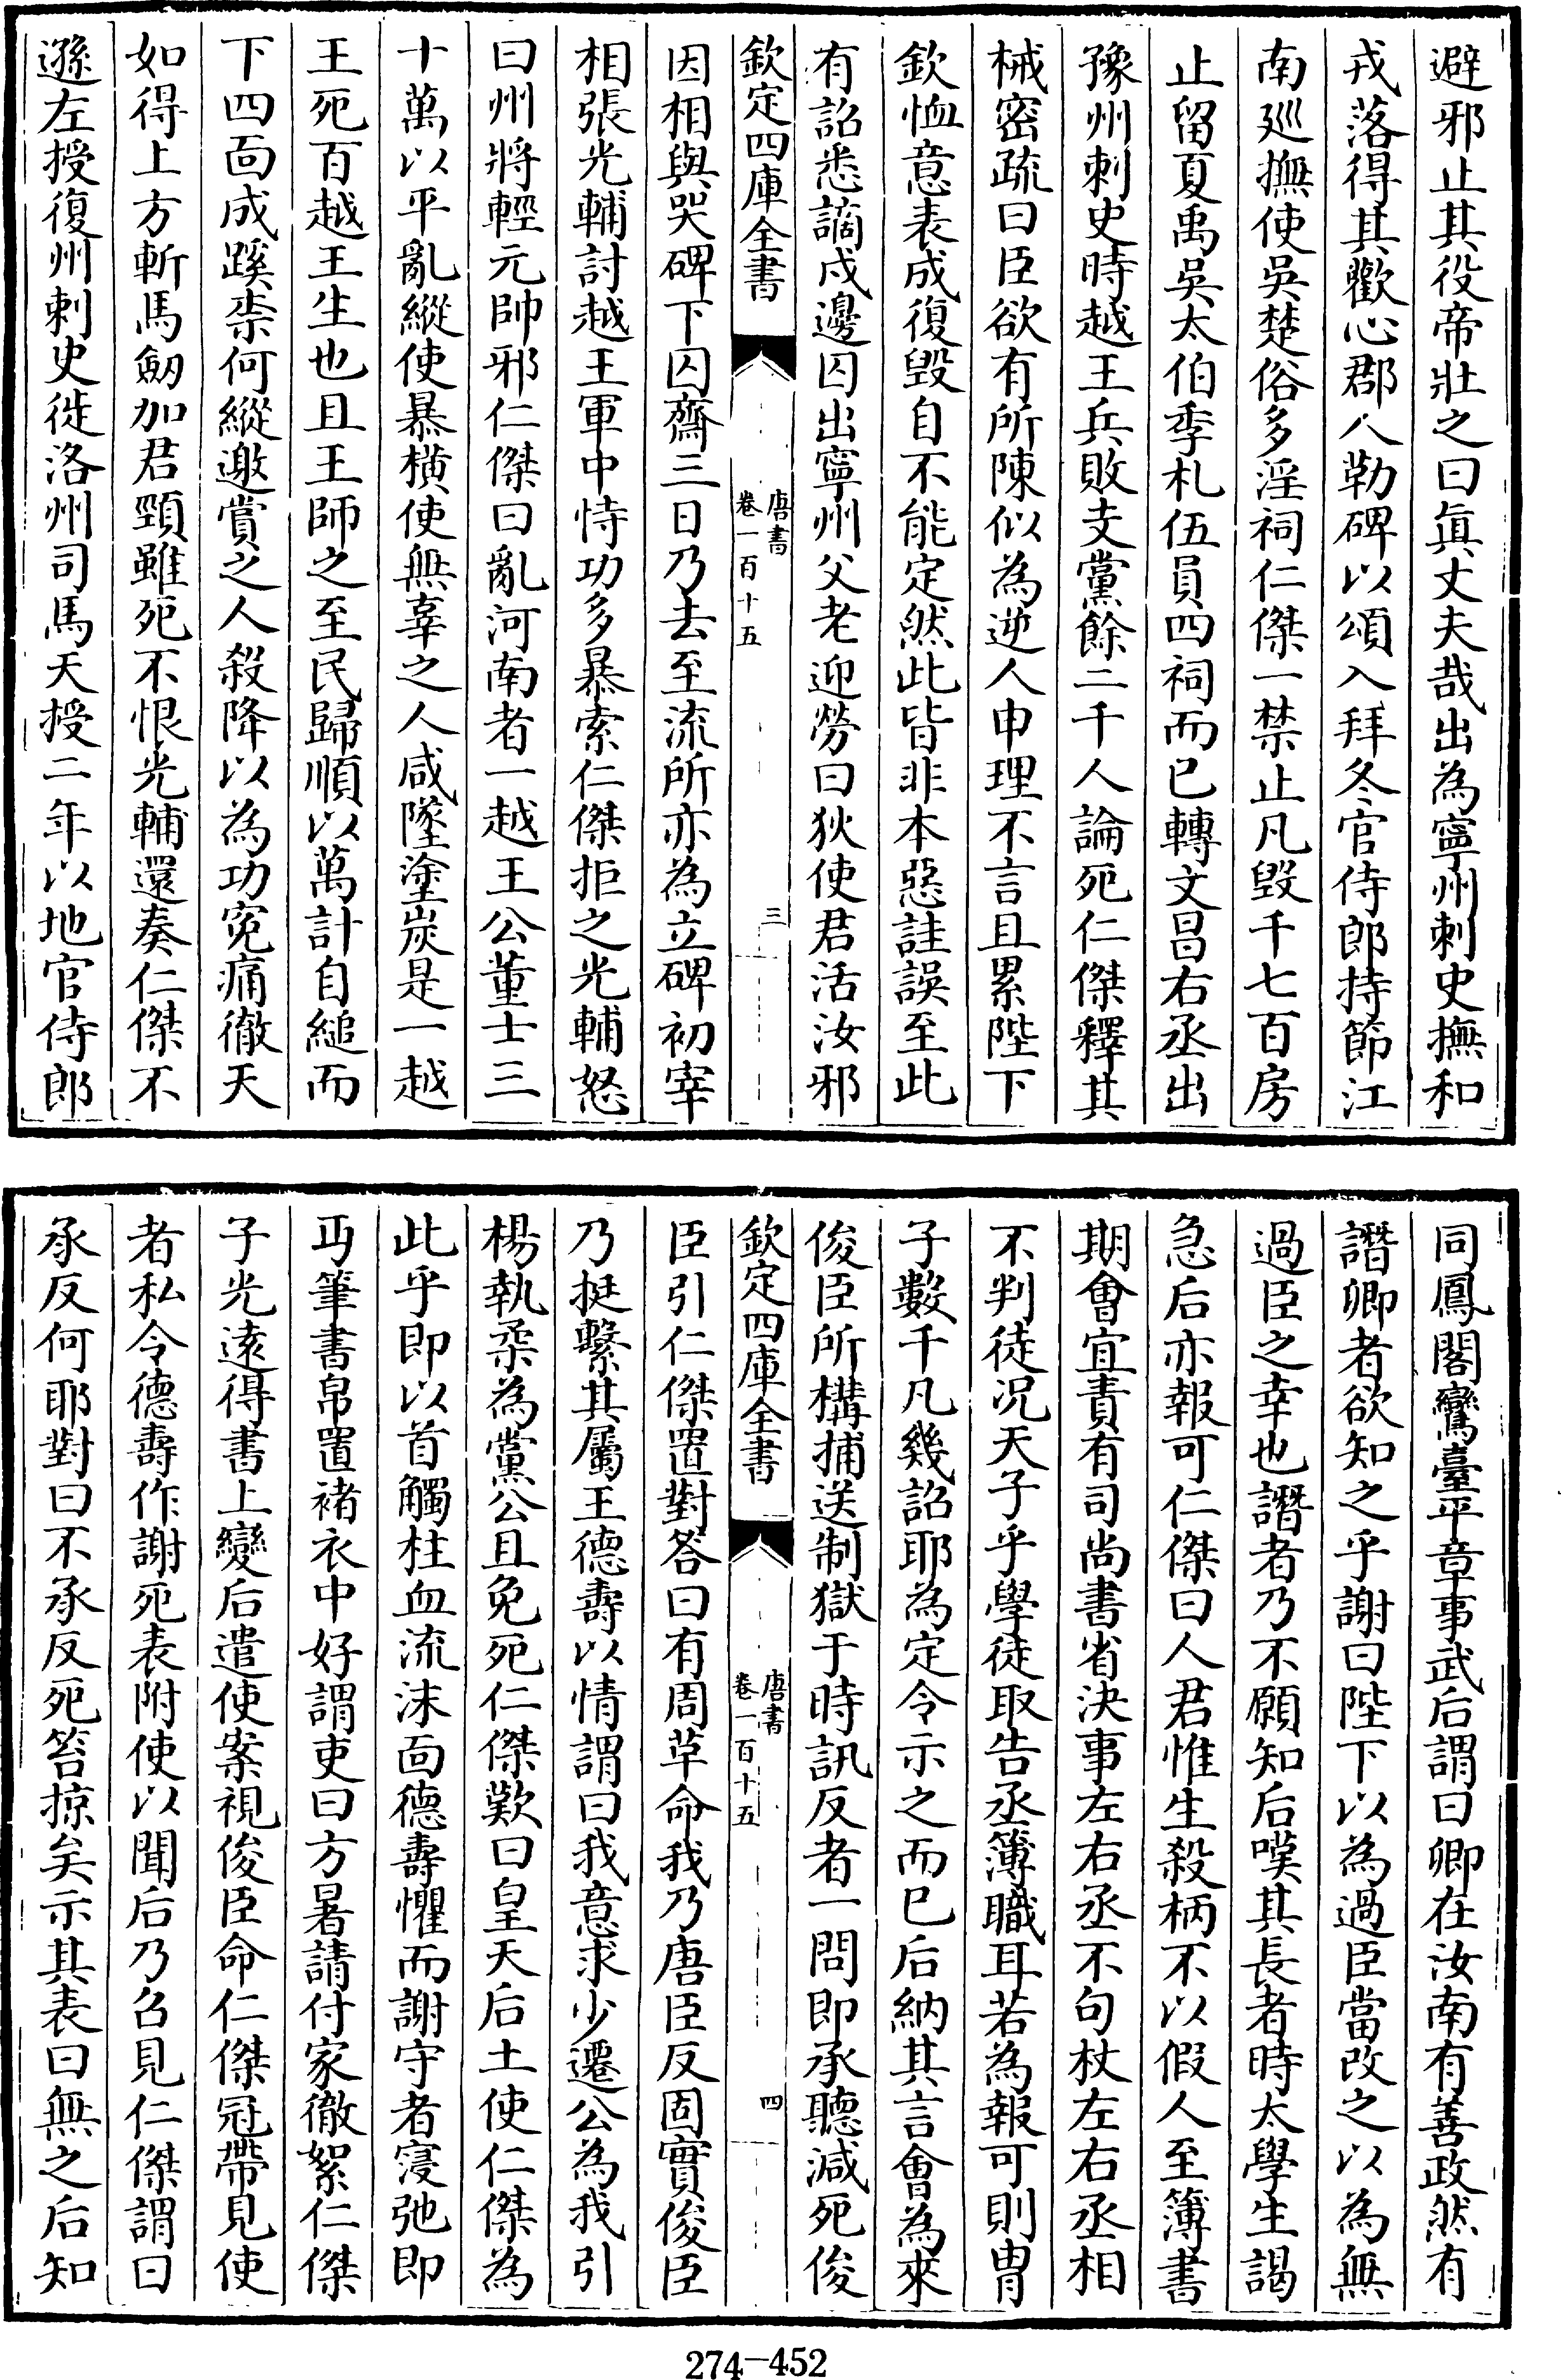 避邪止其役帝壯之曰真丈夫哉出為寧州刺史撫和
戎落得其歡心郡人勒碑以頌入拜冬官侍郎持節江
南廵撫使吳楚俗多淫祠仁傑一禁止凡毀千七百房
止留夏禹吳太伯季札伍員四祠而已轉文昌右丞出
豫州刺史時越王兵敗支黨餘二千人論死仁傑釋其
械密疏曰臣欲有所陳似為逆人申理不言且累陛下
欽恤意表成復毀自不能定然此皆非本惡詿誤至此
有詔悉謫戍邊囚出寧州父老迎勞曰狄使君活汝邪
欽定四庫全書
唐書
卷一百十五
三
因相與哭碑下囚齋三日乃去至流所亦為立碑初宰
相張光輔討越王軍中恃功多暴索仁傑拒之光輔怒
曰州將輕元帥邪仁傑曰亂河南者一越王公董士三
十萬以平亂縱使暴橫使無辜之人咸墜塗炭是一越
王死百越王生也且王師之至民歸順以萬計自縋而
下四面成蹊柰何縱邀賞之人殺降以為功寃痛徹天
如得上方斬馬劒加君頸雖死不恨光輔還奏仁傑不
遜左授復州刺史徙洛州司馬天授二年以地官侍郎
同鳳閣鸞臺平章事武后謂曰卿在汝南有善政然有
譖卿者欲知之乎謝曰陛下以為過臣當改之以為無
過臣之幸也譖者乃不願知后嘆其長者時太學生謁
急后亦報可仁傑曰人君惟生殺柄不以假人至簿書
期會宜責有司尚書省決事左右丞不句杖左右丞相
不判徒况天子乎學徒取告丞簿職耳若為報可則胄
子數千凡幾詔耶為定令示之而已后納其言會為來
俊臣所構捕送制獄于時訊反者一問即承聽減死俊
欽定四庫全書
唐書
卷一百十五
四
臣引仁傑置對答曰有周革命我乃唐臣反固實俊臣
乃挺繫其屬王德壽以情謂曰我意求少遷公為我引
楊執柔為黨公且免死仁傑歎曰皇天后土使仁傑為
此乎即以首觸柱血流沬面德壽懼而謝守者寖弛即
丐筆書帛置褚衣中好謂吏曰方暑請付家徹絮仁傑
子光遠得書上變后遣使案視俊臣命仁傑冠帶見使
者私令德壽作謝死表附使以聞后乃召見仁傑謂曰
承反何耶對曰不承反死笞掠矣示其表曰無之后知
274-452